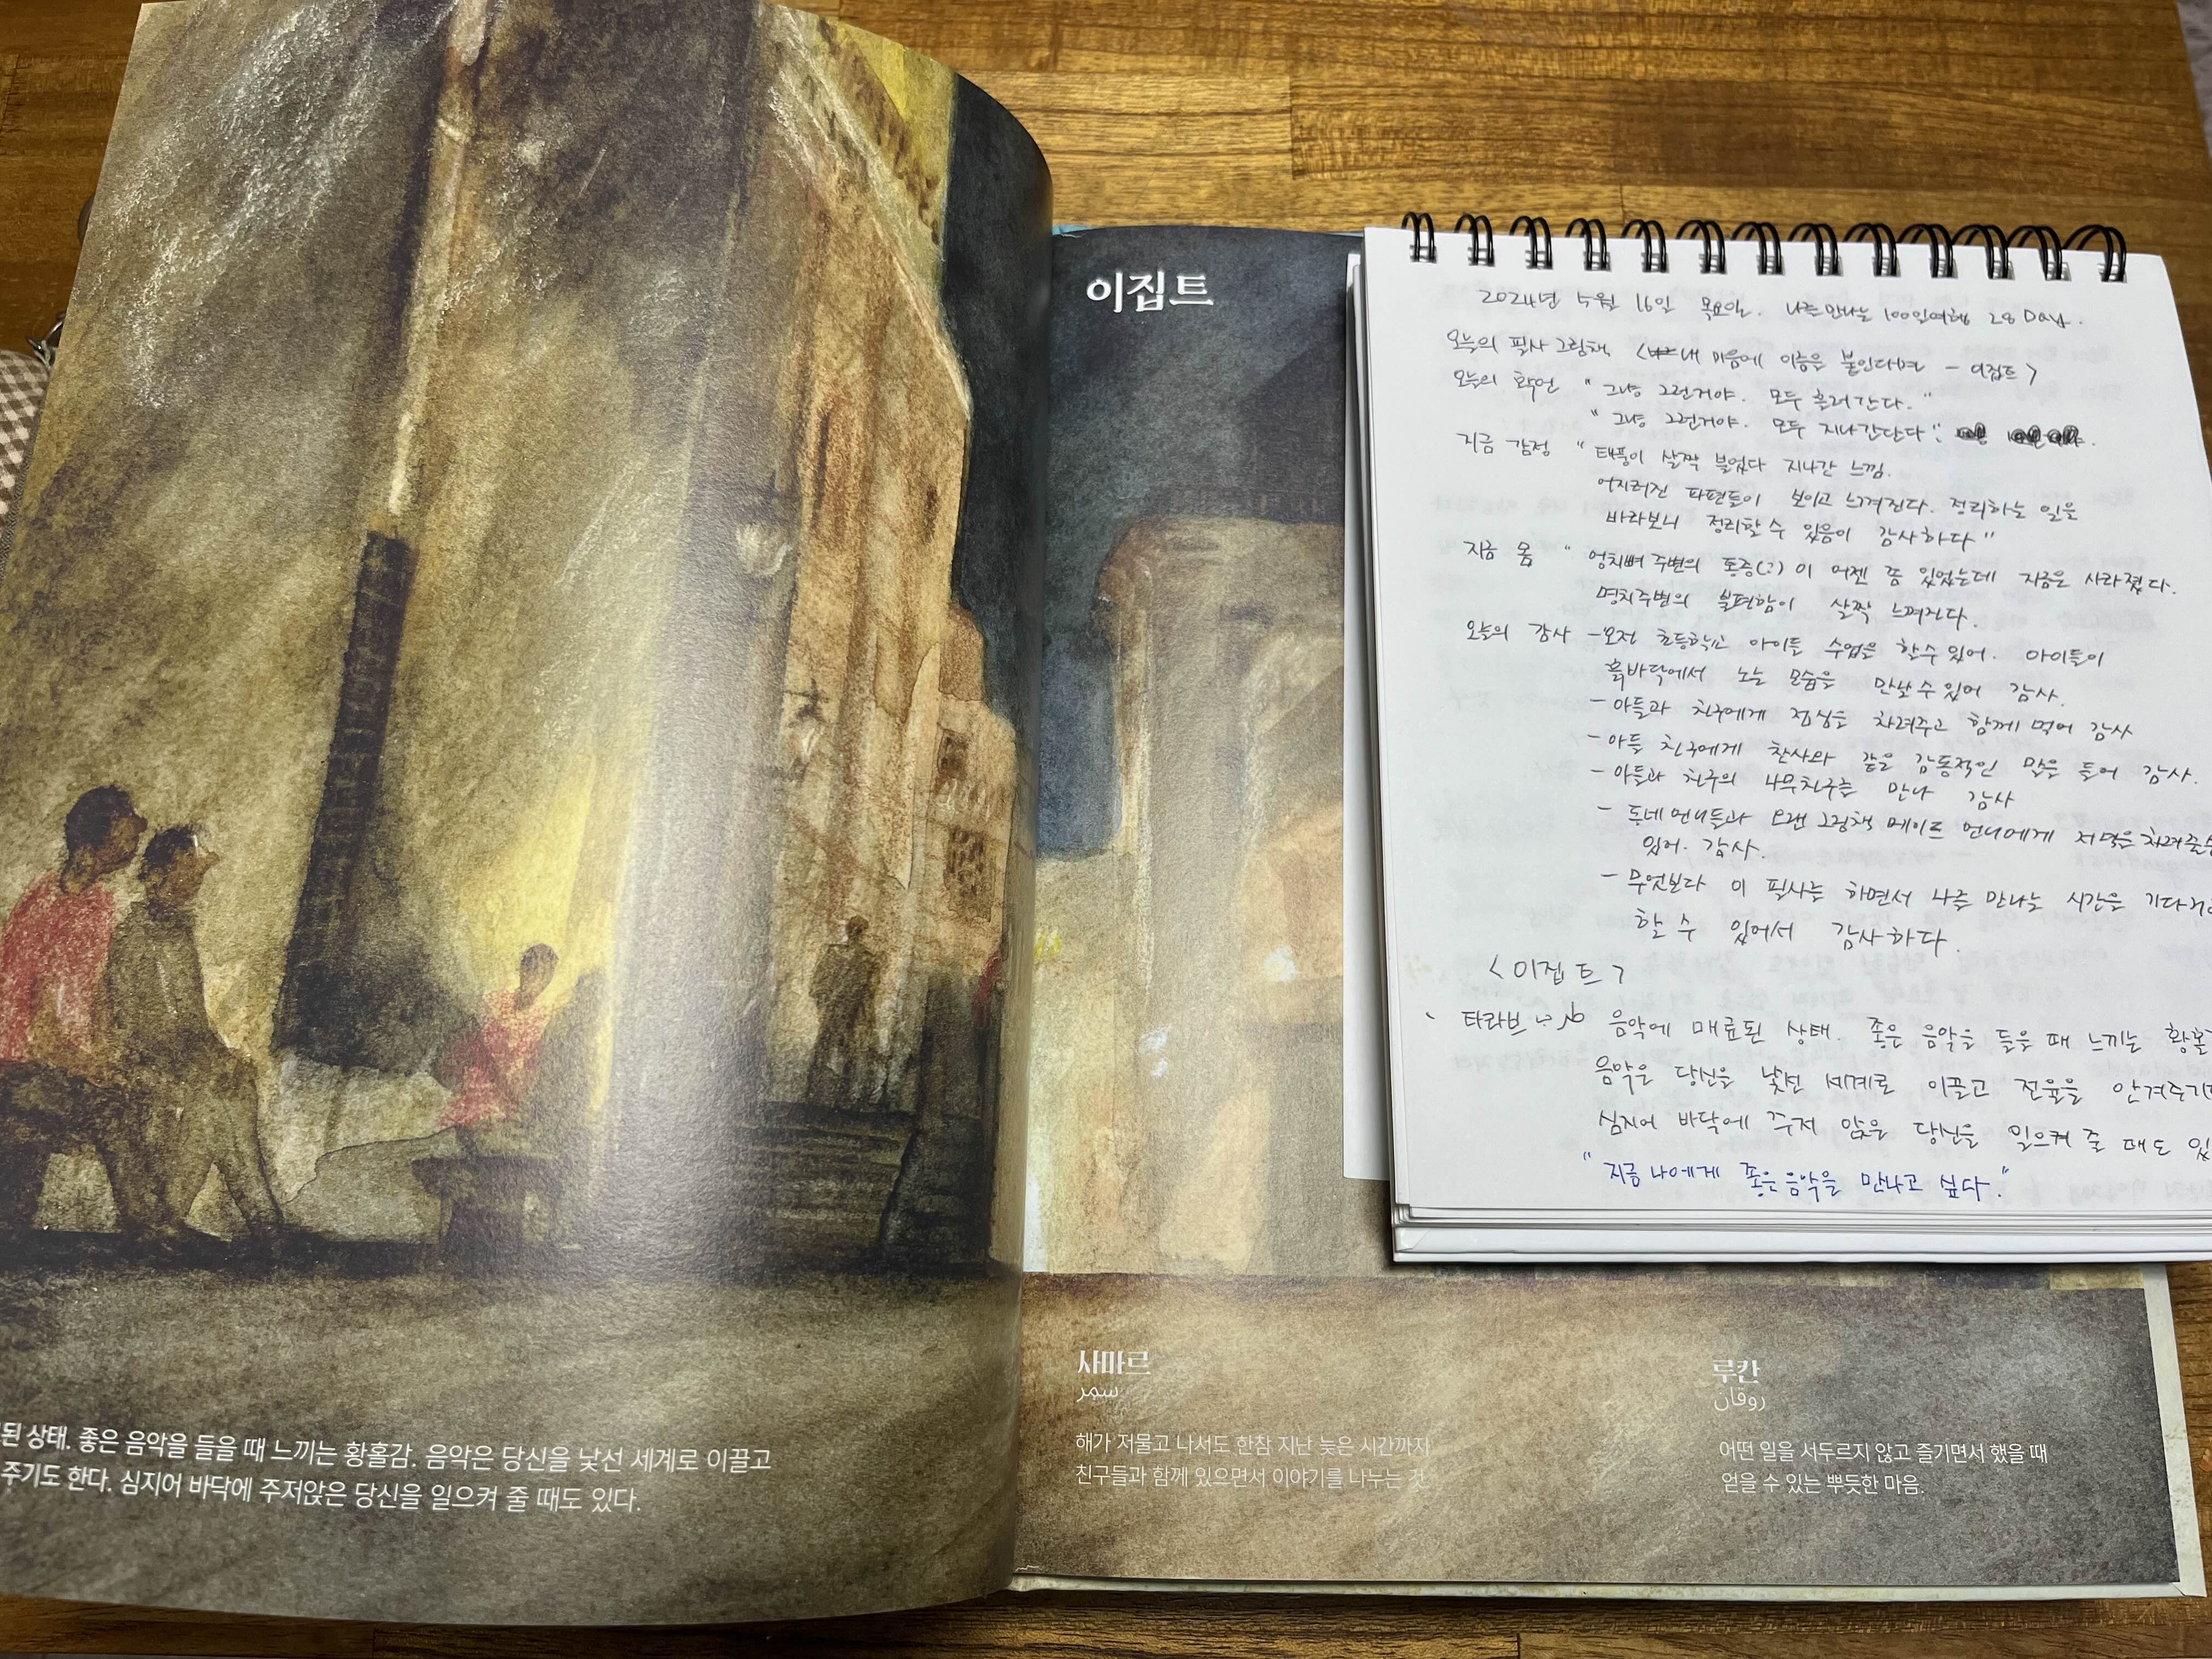 된 상태. 좋은 음악을 들을 때 느끼는 황홀감. 음악은 당신을 낯선 세계로 이끌고
주기도 한다. 심지어 바닥에 주저앉은 당신을 일으켜 줄 때도 있다.
이집트
사마르
سمر
해가 저물고 나서도 한참 지난 늦은 시간까지
친구들과 함께 있으면서 이야기를 나누는 것.
루칸
روقان
어떤 일을 서두르지 않고 즐기면서 했을 때
얻을 수 있는 뿌듯한 마음.
2024년 5월 16일 목요일. 나를 만나는 100일여행 28 Day.
오늘의 필사 그림책 <내 마음에 이름을 붙인다면 - 이집트>
오늘의 확언 " 그냥 그런거야. 모두 흘러간다. "
" 그냥 그런거야. 모두 지나간단다".
지금 감정 " 태풍이 살짝 불었다 지나간 느낌.
어지러진 파편들이 보이고 느껴진다. 정리하는 일을
바라보니 정리할 수 있음이 감사하다 "
지금 몸 " 엉치뼈 주변의 통증(?)이 어젠 좀 있었는데 지금은 사라졌다.
명치주변의 불편함이 살짝 느껴진다.
오늘의 감사 - 오전 초등학교 아이들 수업을 할 수 있어. 아이들이
흙바닥에서 노는 모습을 만날 수 있어 감사.
- 아들과 친구에게 점심을 차려주고 함께 먹어 감사
- 아들 친구에게 찬사와 같은 감동적인 말을 들어 감사.
- 아들과 친구의 나무친구를 만나 감사
- 동네 언니들과 오랜 그림책 메이트 언니에게 저녁을 차려줄수
있어. 감사.
- 무엇보다 이 필사를 하면서 나를 만나는 시간을
할 수 있어서 감사하다.
<이집트>
타라브 음악에 매료된 상태. 좋은 음악을 들을 때 느끼는 황홀
음악은 당신을 낯선 세계로 이끌고 전율을 안겨주기
심지어 바닥에 주저 앉은 당신을 일으켜 줄 때도 있
" 지금 나에게 좋은 음악을 만나고 싶다. "